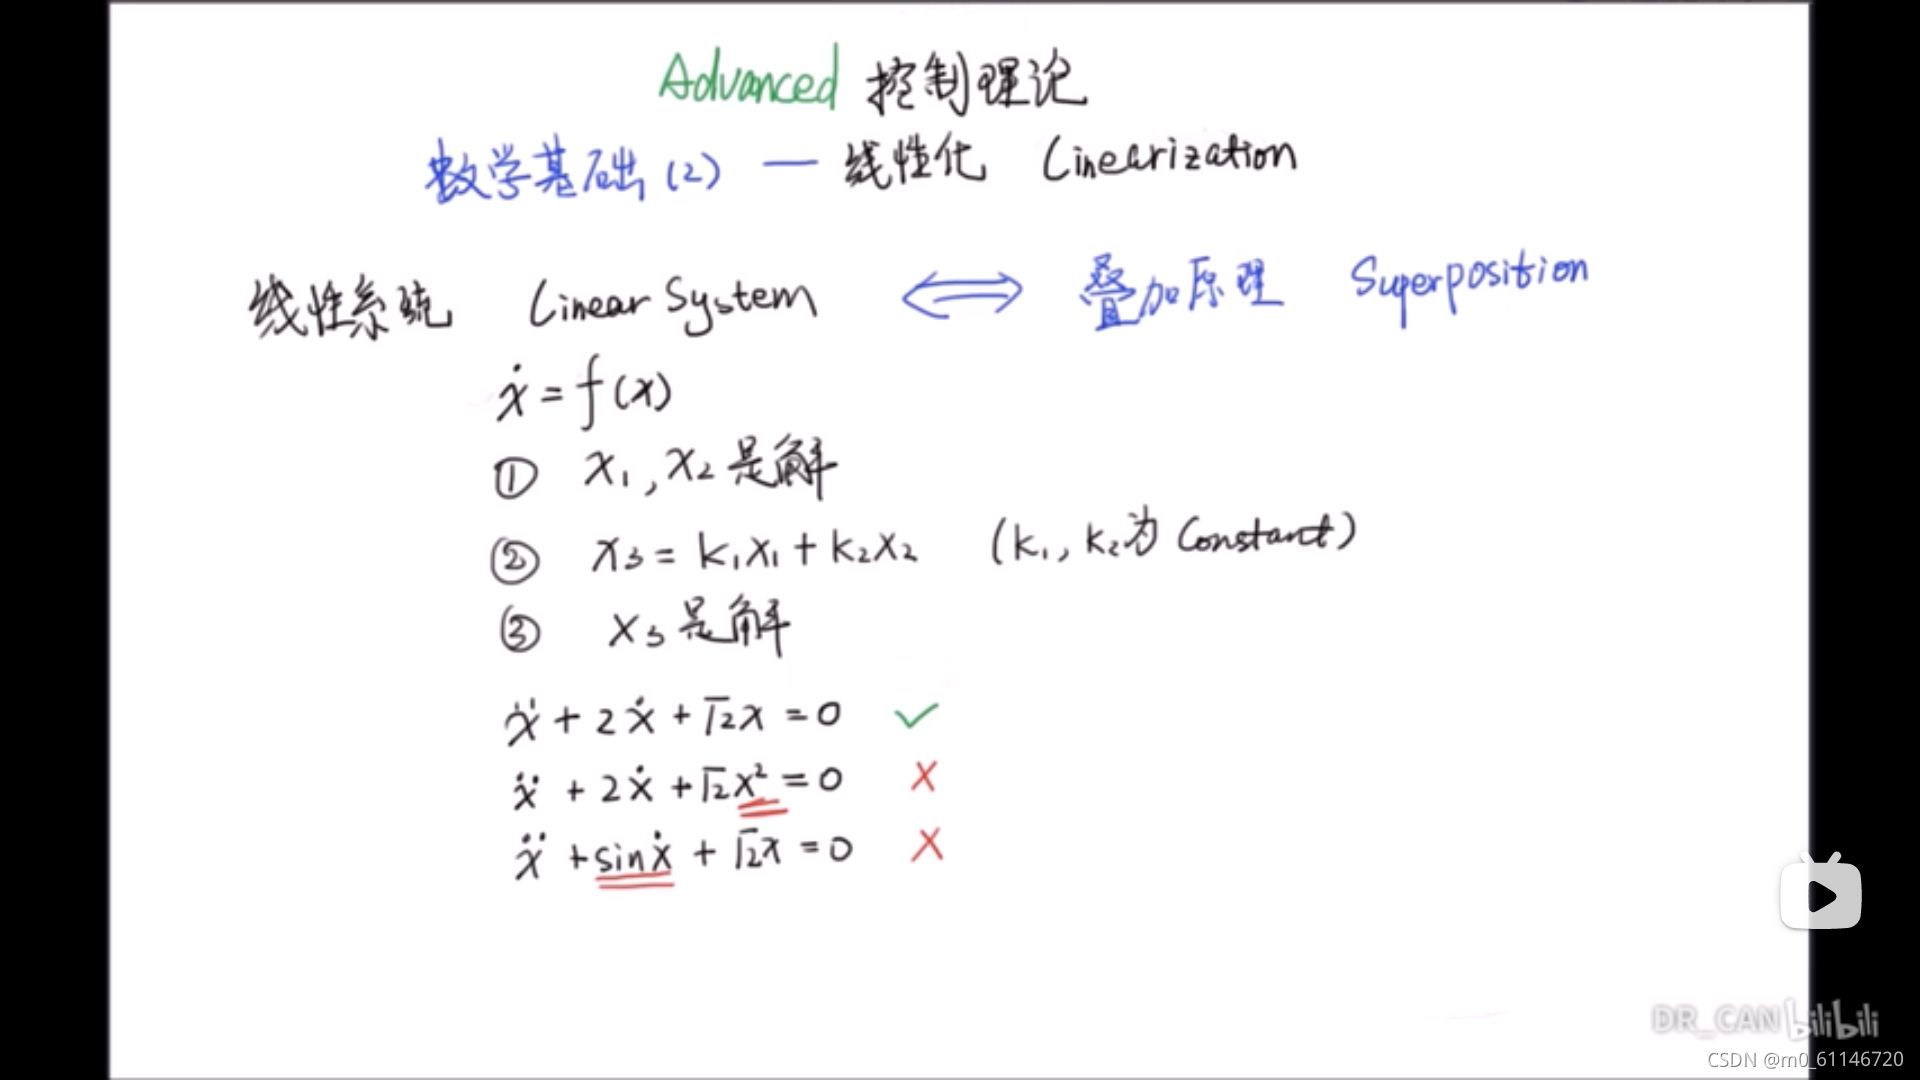 Advanced 控制理论
数学基础(2) — 线性化 Linearization
线性系统 Linear System ⟺ 叠加原理 Superposition
ẋ = f(x)
① x₁, x₂ 是解
② x₃ = k₁x₁ + k₂x₂ (k₁, k₂为 Constant)
③ x₃ 是解
ẍ + 2ẋ + √2x = 0 ✓
ẍ + 2ẋ + √2x² = 0 ×
ẍ + sinẋ + √2x = 0 ×
DR_CAN bilibili
CSDN @m0_61146720